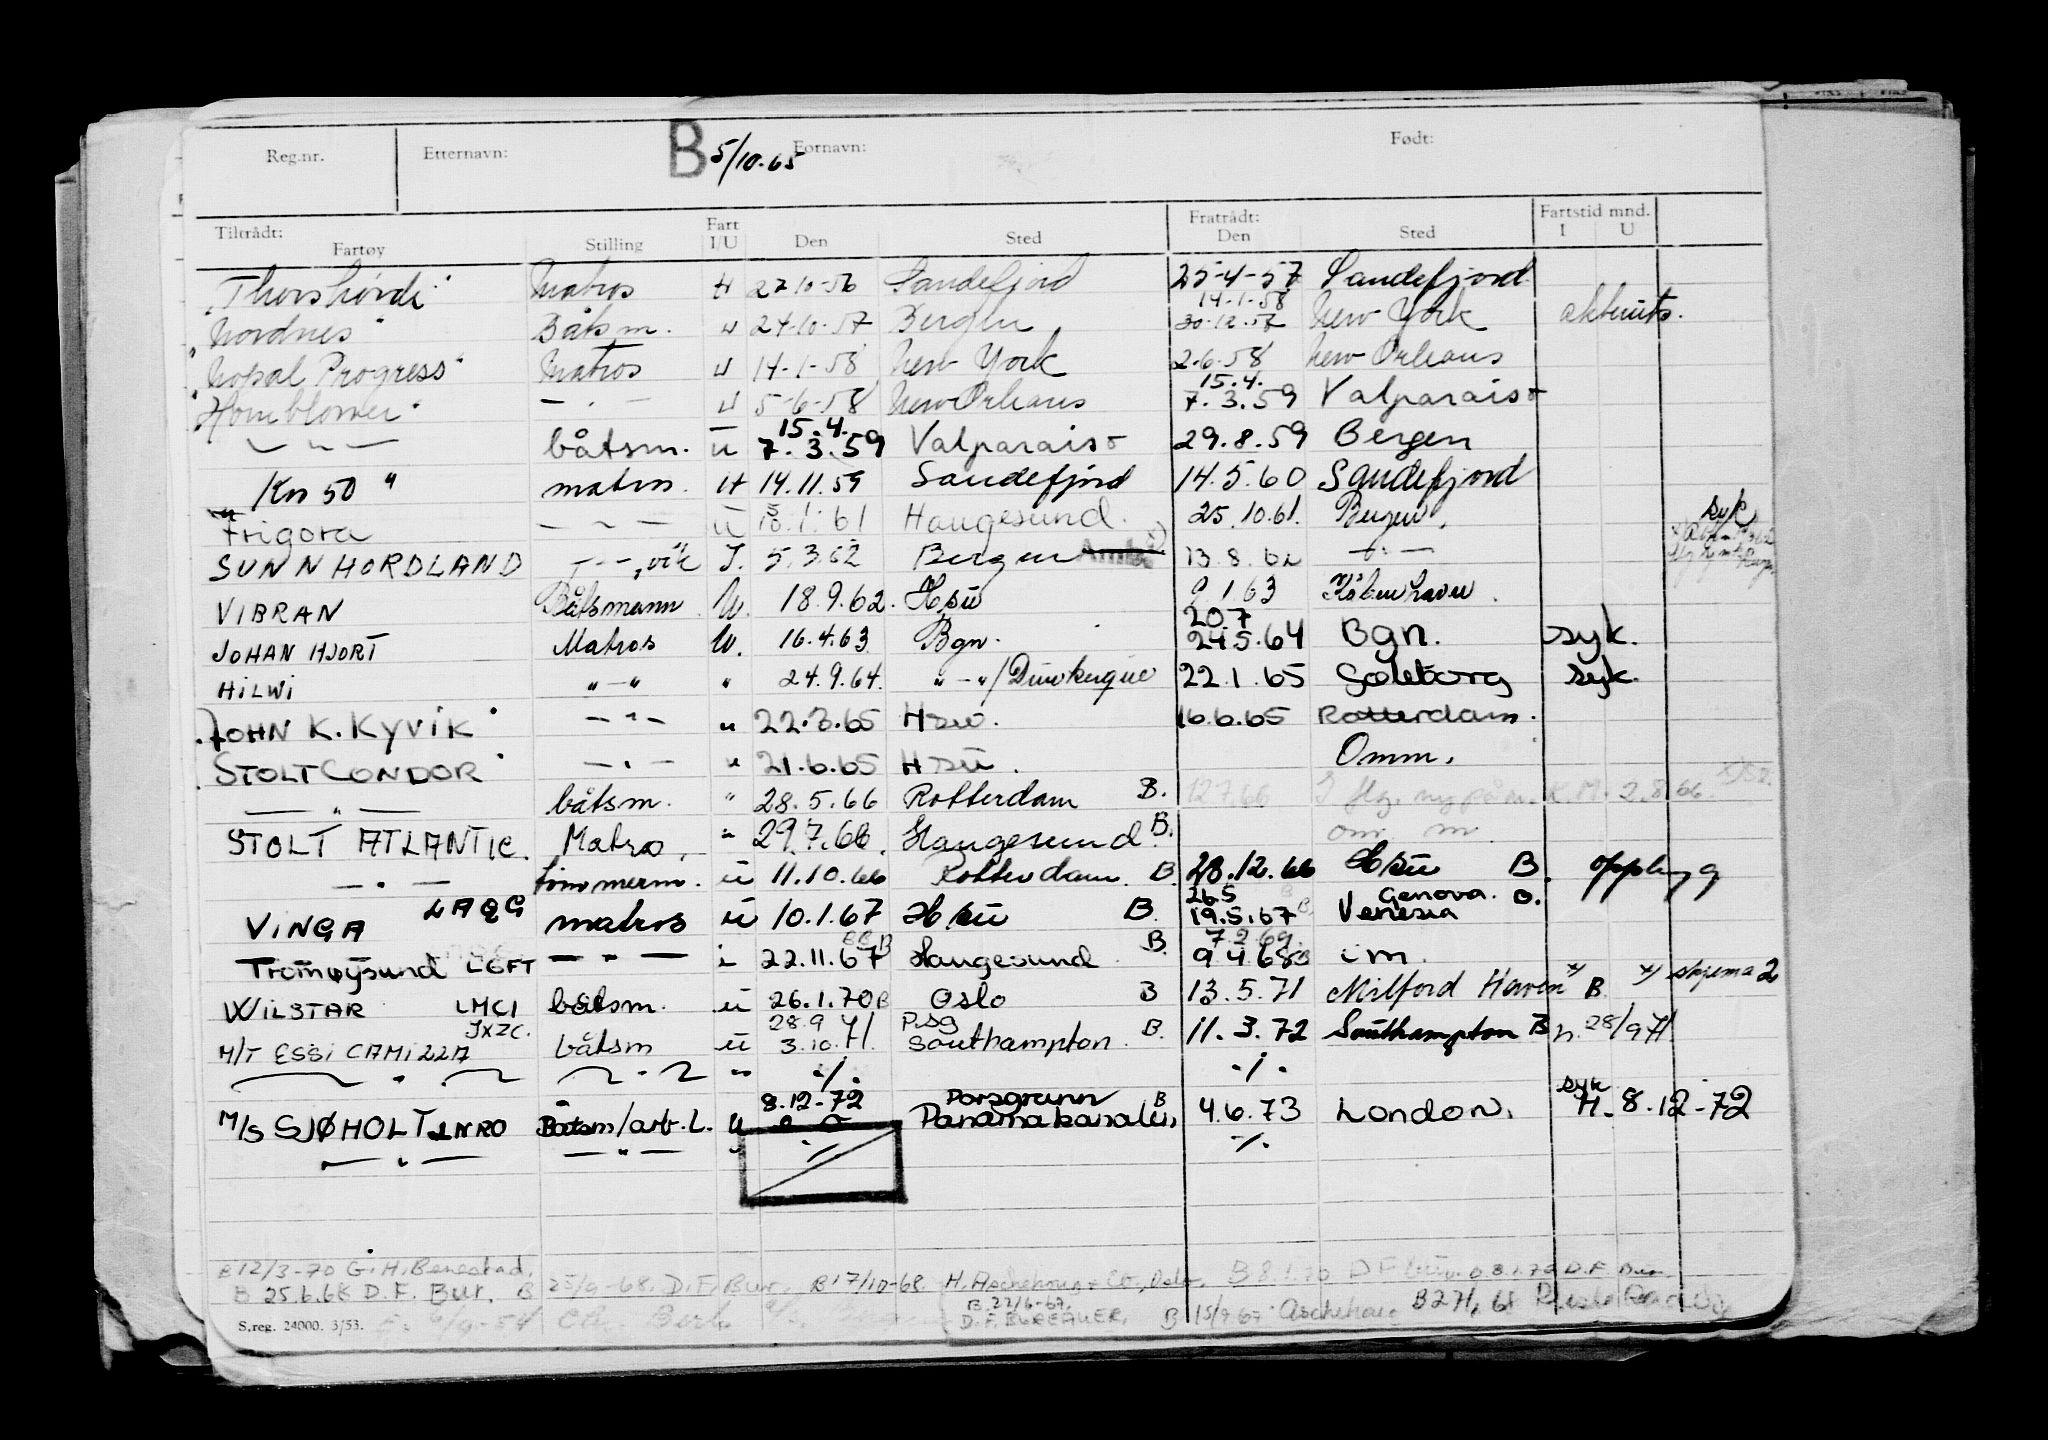 Reg.nr. Etternavn: B 5/10.65 Fornavn: Født:
Tiltrådt: Fratrådt: Fartstid mnd.
Fartøy Stilling Fart I/U Den Sted Den Sted I U
"Thorshövdi" Matros H 27-10-56 Sandefjord 25-4-57 Sandefjord
14.1.58
"Nordnes" Båtsm. U 24-10-57 Bergen 30-12-57 New York
"Nopal Progress" Matros U 14-1-58 New York 2-6-58 New Orleans
15.4.
"Hornblower" — . — U 5-6-58 New Orleans 7.3.59 Valparaiso
15.4.
— " — båtsm. u 7.3.59 Valparaiso 29.8.59 Bergen
"Kos 50" matros H 14.11.59 Sandefjord 14.5.60 Sandefjord
Frigora — " — u 1.61 Haugesund. 25.10.61. Bergen. syk
SUNNHORDLAND — " — I. 5.3.62 Bergen 13.8.62 — " —
VIBRAN Båtsmann U. 18.9.62. Hsu 9 1 63 København.
20.7
JOHAN HJORT Matros U. 16.4.63 Bgn. 24.5.64 Bgn. syk.
HILWI " — " " 24.9.64. " — " /Dunkerque 22.1.65 Gøteborg syk.
"JOHN K. KYVIK" — " — " 22.3.65 Hsu. 16.6.65 Rotterdam.
STOLT CONDOR — . — " 21.6.65 Hsu. Omm.
— " — båtsm. " 28.5.66 Rotterdam B. 12.7.66 2.8.66
STOLT ATLANTIC. Matros. " 29.7.66. Haugesund. B. om m
— . — tømmerm. u 11.10.66 Rotterdam. B. 28.12.66 Hsu B. oppl
26.5 Genova. B.
VINGA LAQG matros u 10.1.67 Hsu B. 19.5.67 Venesia
7.2.69.
Tromøysund LGFT — " — i 22.11.67 Haugesund B. 9.4.68 im.
WILSTAR LMCI båtsm. u 26.1.70 B Oslo B 13.5.71 Milford Haven x) B. x) skjema 2
JXZC. 28.9.71. Psg
M/T ESSI CAMILLA båtsm u 3.10.71. Southampton. B. 11.3.72 Southampton B h. 28/9 71.
— " — — " — " ./. ./.
8.12-72 Porsgrunn B syk
M/S SJØHOLT LNRO Båtsm/arb.L. U Panamakanalen, 4.6.73 London. H. 8.12-72
— " — — " — " ./. ./.
B 12/3-70 G.H. Benestad,
B 25.6.68 D.F. Bur. B 25/9-68. D.F. Bur. B 17/10-68. H. Aschehoug & Co, Oslo. B 8.1.70 D F bur. B 8.1.72 D.F. Bur.
B 22/6-67.
D.F. BUREAUER. B 15/9 67 Aschehoug
S.reg. 24000. 3/53.